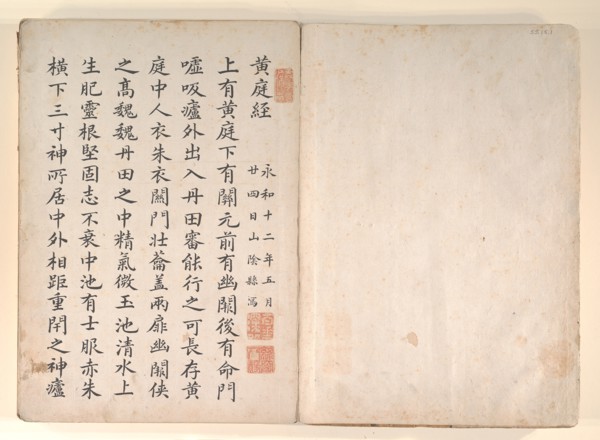 黄庭経
永和十二年五月
廿四日山陰縣寫
上有黄庭下有關元前有幽闕後有命門
嘘吸廬外出入丹田審能行之可長存黄
庭中人衣朱衣關門壮蘥盖兩扉幽闕俠
之髙魏魏丹田之中精氣微玉池清水上
生肥靈根堅固志不衰中池有士服赤朱
横下三寸神所居中外相距重閇之神廬